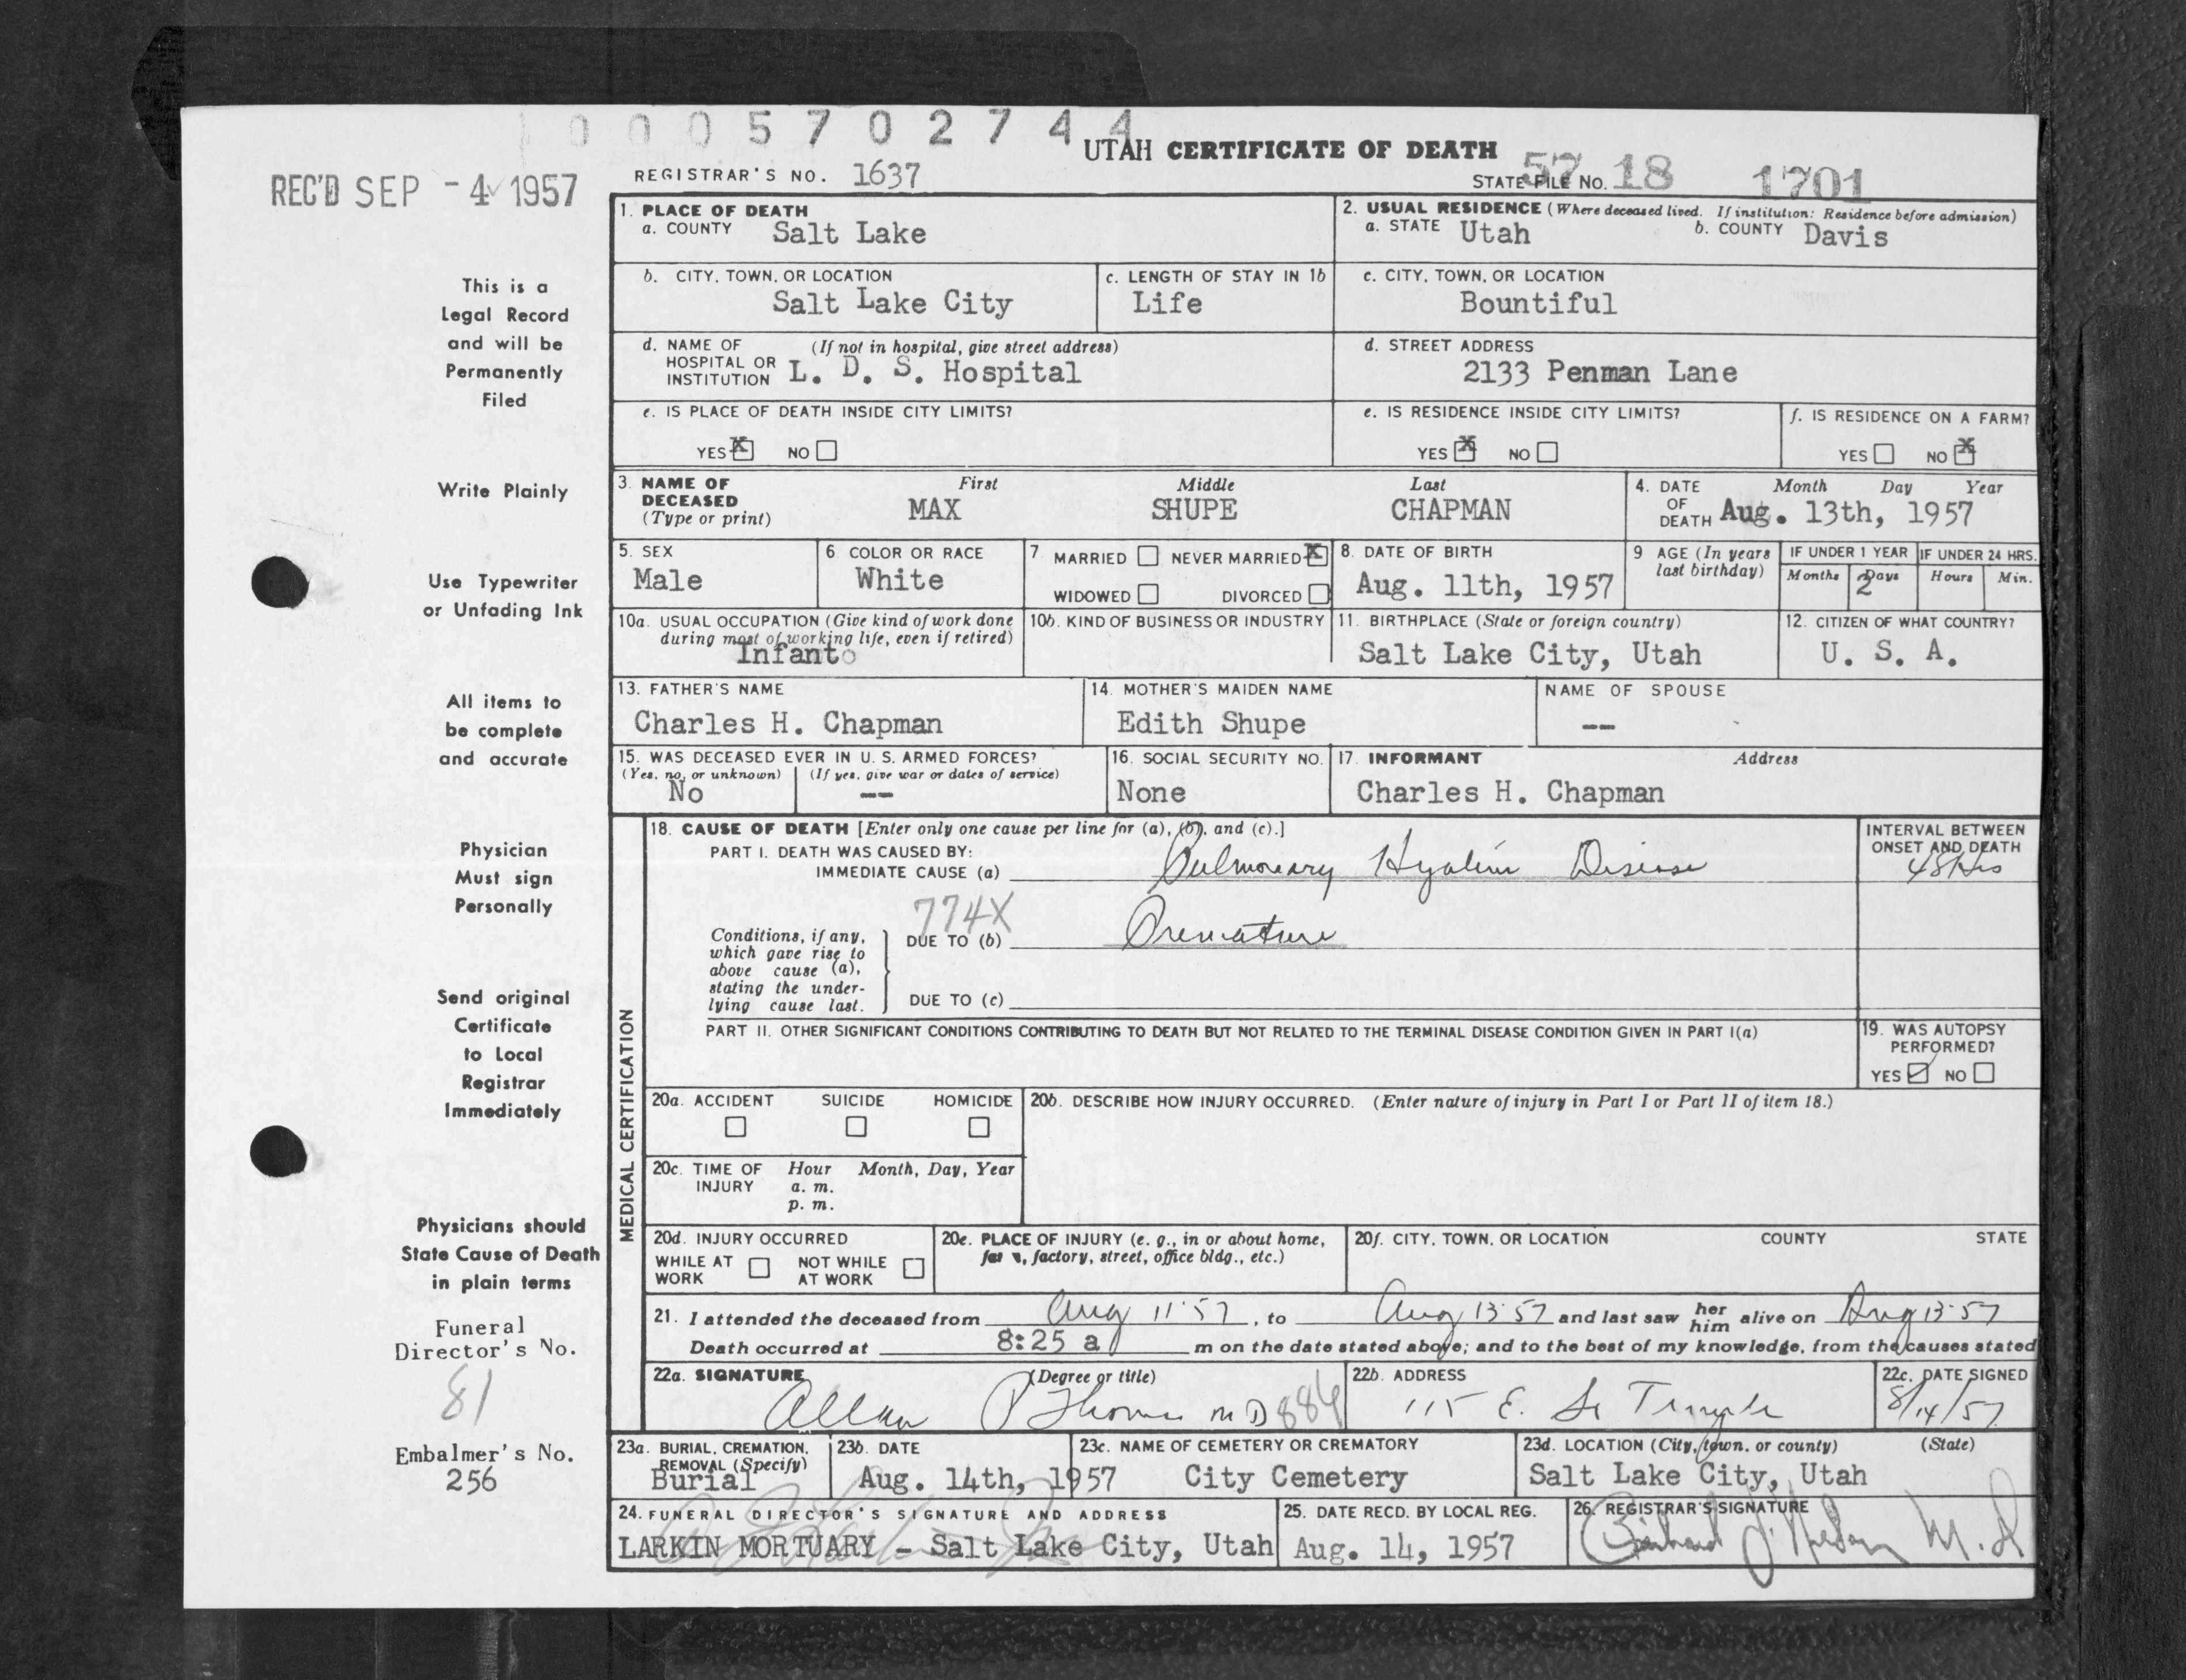 0005702744
UTAH CERTIFICATE OF DEATH
REC'D SEP -4 1957
REGISTRAR'S NO. 1637
STATE FILE NO. 57 18 1701
This is a
Legal Record
and will be
Permanently
Filed
Write Plainly
Use Typewriter
or Unfading Ink
All items to
be complete
and accurate
Physician
Must sign
Personally
Send original
Certificate
to Local
Registrar
Immediately
Physicians should
State Cause of Death
in plain terms
Funeral
Director's No.
81
Embalmer's No.
256
1. PLACE OF DEATH
a. COUNTY Salt Lake
2. USUAL RESIDENCE (Where deceased lived. If institution: Residence before admission)
a. STATE Utah b. COUNTY Davis
b. CITY, TOWN, OR LOCATION
Salt Lake City
c. LENGTH OF STAY IN 1b
Life
c. CITY, TOWN, OR LOCATION
Bountiful
d. NAME OF (If not in hospital, give street address)
HOSPITAL OR
INSTITUTION L. D. S. Hospital
d. STREET ADDRESS
2133 Penman Lane
e. IS PLACE OF DEATH INSIDE CITY LIMITS?
YES X NO
e. IS RESIDENCE INSIDE CITY LIMITS?
YES X NO
f. IS RESIDENCE ON A FARM?
YES NO X
3. NAME OF DECEASED
(Type or print)
First Middle Last
MAX SHUPE CHAPMAN
4. DATE OF DEATH
Month Day Year
Aug. 13th, 1957
5. SEX
Male
6. COLOR OR RACE
White
7. MARRIED NEVER MARRIED X
WIDOWED DIVORCED
8. DATE OF BIRTH
Aug. 11th, 1957
9 AGE (In years
last birthday)
IF UNDER 1 YEAR
Months Days
2
IF UNDER 24 HRS.
Hours Min.
10a. USUAL OCCUPATION (Give kind of work done
during most of working life, even if retired)
Infant
10b. KIND OF BUSINESS OR INDUSTRY
11. BIRTHPLACE (State or foreign country)
Salt Lake City, Utah
12. CITIZEN OF WHAT COUNTRY?
U. S. A.
13. FATHER'S NAME
Charles H. Chapman
14. MOTHER'S MAIDEN NAME
Edith Shupe
NAME OF SPOUSE
--
15. WAS DECEASED EVER IN U. S. ARMED FORCES?
(Yes, no, or unknown) (If yes, give war or dates of service)
No --
16. SOCIAL SECURITY NO.
None
17. INFORMANT Address
Charles H. Chapman
MEDICAL CERTIFICATION
18. CAUSE OF DEATH [Enter only one cause per line for (a), (b), and (c).]
PART I. DEATH WAS CAUSED BY:
IMMEDIATE CAUSE (a) Pulmonary Hyalin Disease
INTERVAL BETWEEN
ONSET AND DEATH
48 Hrs
774X
Conditions, if any,
which gave rise to
above cause (a),
stating the under-
lying cause last.
DUE TO (b) Premature
DUE TO (c)
PART II. OTHER SIGNIFICANT CONDITIONS CONTRIBUTING TO DEATH BUT NOT RELATED TO THE TERMINAL DISEASE CONDITION GIVEN IN PART I(a)
19. WAS AUTOPSY
PERFORMED?
YES ✓ NO
20a. ACCIDENT SUICIDE HOMICIDE
20b. DESCRIBE HOW INJURY OCCURRED. (Enter nature of injury in Part I or Part II of item 18.)
20c. TIME OF INJURY
Hour Month, Day, Year
a. m.
p. m.
20d. INJURY OCCURRED
WHILE AT WORK NOT WHILE AT WORK
20e. PLACE OF INJURY (e. g., in or about home,
factory, street, office bldg., etc.)
20f. CITY, TOWN, OR LOCATION COUNTY STATE
21. I attended the deceased from Aug 11 '57, to Aug 13 '57 and last saw her him alive on Aug 13 '57
Death occurred at 8:25 a m on the date stated above; and to the best of my knowledge, from the causes stated
22a. SIGNATURE (Degree or title)
Allan P Thomas MD 886
22b. ADDRESS
115 E. So Temple
22c. DATE SIGNED
8/14/57
23a. BURIAL, CREMATION,
REMOVAL (Specify)
Burial
23b. DATE
Aug. 14th, 1957
23c. NAME OF CEMETERY OR CREMATORY
City Cemetery
23d. LOCATION (City, town, or county) (State)
Salt Lake City, Utah
24. FUNERAL DIRECTOR'S SIGNATURE AND ADDRESS
LARKIN MORTUARY - Salt Lake City, Utah
25. DATE RECD. BY LOCAL REG.
Aug. 14, 1957
26. REGISTRAR'S SIGNATURE
M.D